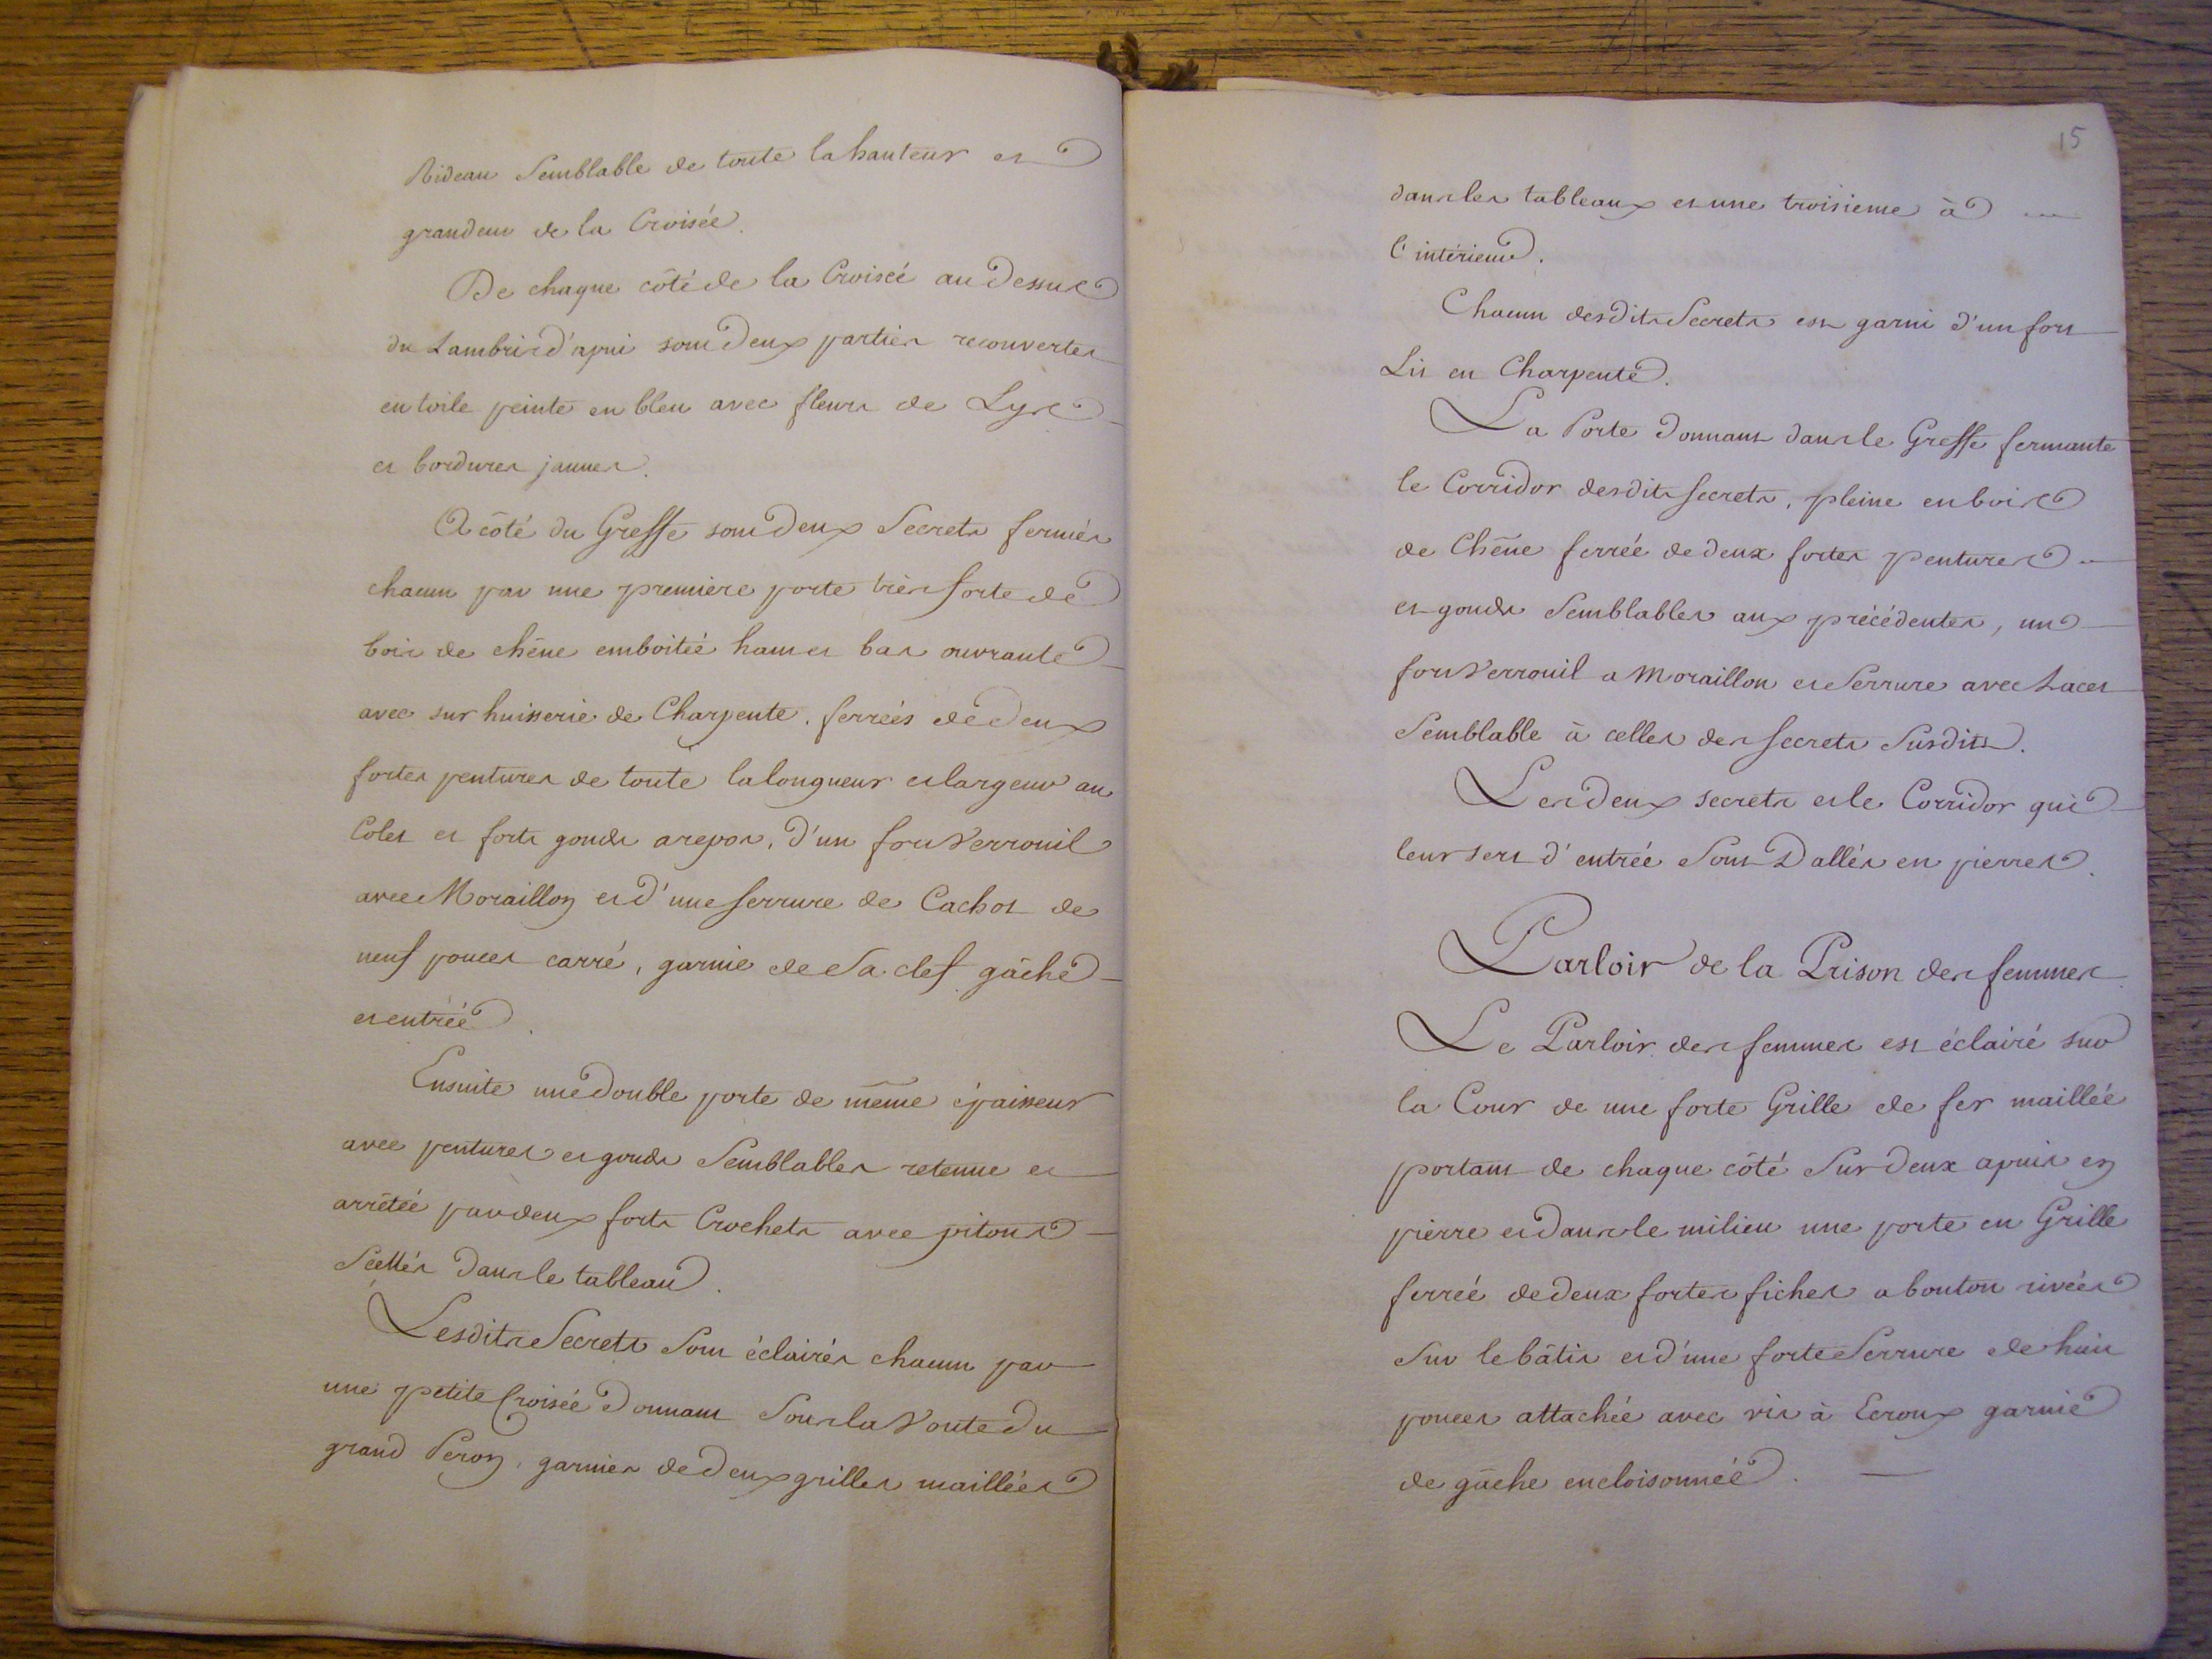 Rideau Semblable de toute la hauteur et
grandeur de la Croisée.
De chaque côté de la Croiseé au Dessus
du Lambris d'apui sont Deux parties recouvertes
en toile peinte en bleu avec fleurs de Lys
et bordures jaunes.
A côté du Greffe sont Deux Secrets fermés
chacun par une premiere porte très forte de
bois de chêne emboiteé haut et bas ouvrante
avec sur huisserie de Charpente. ferreés de Deux
fortes pentures de toute la longueur et largeur au
Colet et forts gonds a repos, D'un fort Verrouil
avec Moraillon et d'une serrure de Cachot de
neuf pouces carré, garnie de Sa clef gâche
et entreé.
Ensuite une Double porte de même épaisseur
avec pentures et gonds Semblables retenue et
arrêteé par deux forts Crochets avec pitons
Scellés Dans le tableau.
Lesdits Secrets Sont éclairés chacun par
une petite Croiseé Donnant Sous la Voute Du
grand Peron, garnies de Deux grilles mailleés
15
dans les tableaux et une troisieme à
l'intérieur.
Chacun desdits Secrets est garni d'un fort
Lit en Charpente.
La Porte Donnant Dans le Greffe fermante
le Corridor desdits secrets, pleine en bois
de Chêne ferreé de deux fortes pentures
et gonds Semblables aux précédentes, un
fort Verrouil a Moraillon et Serrure avec Lacet
Semblable à celles des secrets Susdits.
Les Deux secrets et le Corridor qui
leur sert d'entreé Sont Dallés en pierres.
Parloir de la Prison des femmes
Le Parloir des femmes est éclairé sur
la Cour de une forte Grille de fer mailleé
portant de chaque côté Sur Deux apuis en
pierre et Dans le milieu une porte en Grille
ferreé de deux fortes fiches a bouton riveés
Sur le bâtis et d'une forte Serrure de huit
pouces attachée avec vis à Ecroux garnie
de gâche encloisonneé.